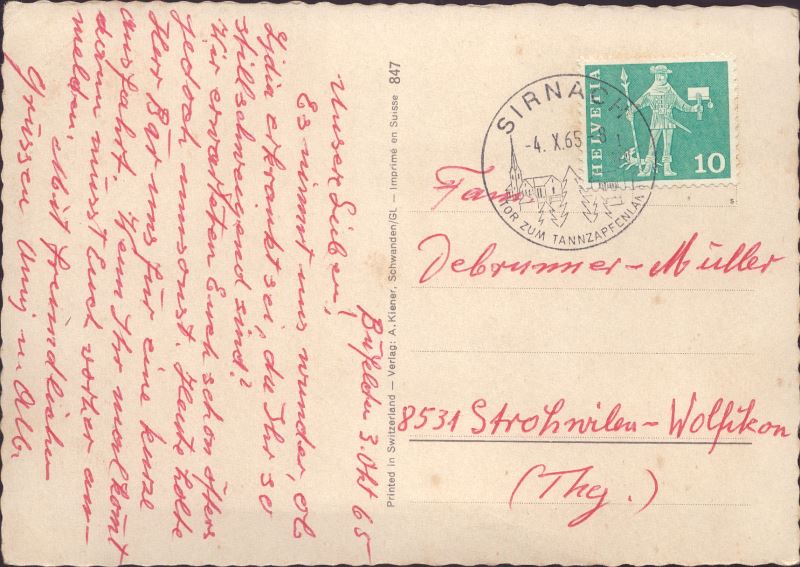 3. Okt 65
Unsere Lieben,
Es nimmt uns wunder, ob
Lydia erkrankt sei, da Ihr so
stillschweigend sind?
Wir erwarteten Euch schon öfters
jedoch umsonst. Heute holte
Herr Bär uns für eine kurze
Ausfahrt. Wenn Ihr mal kommt
dann müsst Euch vorher an-
melden. Mit freundlichen
Grüssen
Printed in Switzerland — Verlag: A. Kiener, Schwanden/GL — Imprimé en Suisse 847
HELVETIA
10
SIRNACH
-4. X.65
TOR ZUM TANNZAPFENLAND
s
Fam.
Debrunner-Müller
8531 Strohwilen-Wolfikon
(Thg.)